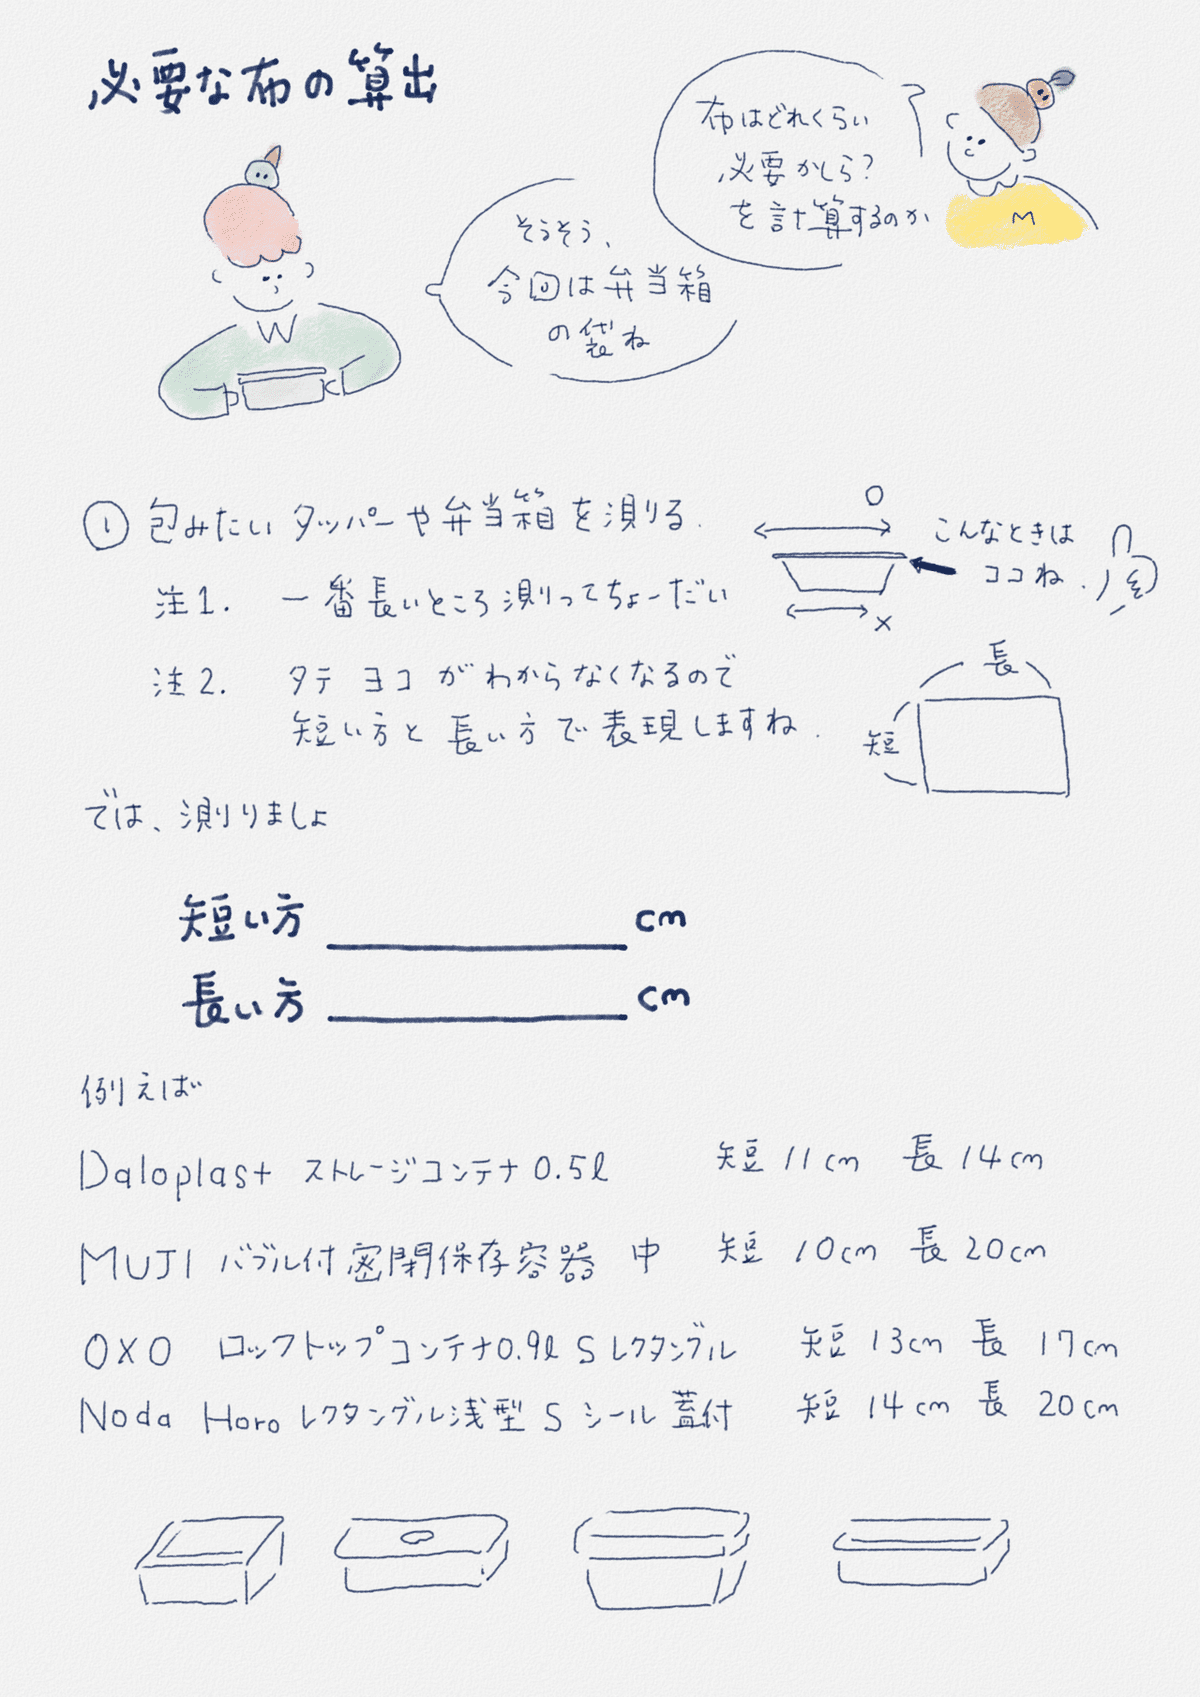 必要な布の算出
布はどれくらい
必要かしら?
を計算するのか
M
そうそう、
今回は弁当箱
の袋ね
① 包みたいタッパーや弁当箱を測る.
○
こんなときは
ココね.
×
注1. 一番長いところ測ってちょーだい
注2. タテ ヨコ がわからなくなるので
短い方と長い方で表現しますね.
長
短
では、測りましょ
短い方 cm
長い方 cm
例えば
Daloplast ストレージコンテナ 0.5ℓ 短 11cm 長 14cm
MUJI バブル付密閉保存容器 中 短 10cm 長 20cm
OXO ロックトップコンテナ0.9ℓ S レクタングル 短 13cm 長 17cm
Noda Horo レクタングル浅型 S シール蓋付 短 14cm 長 20cm